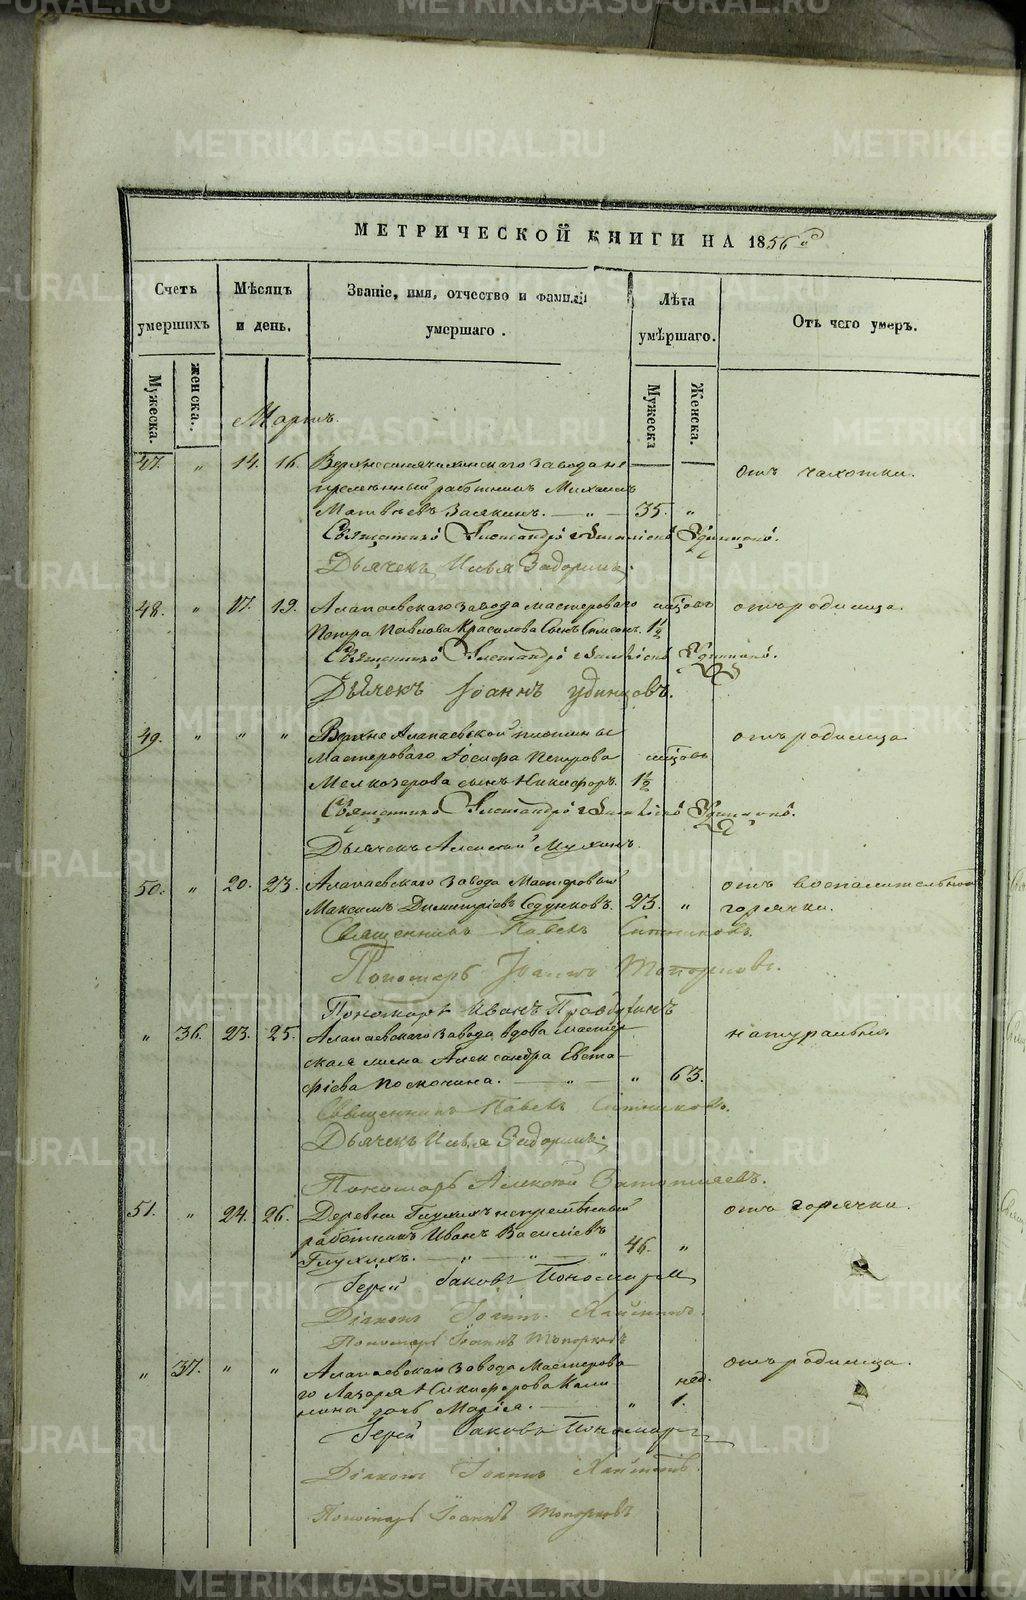 METRIKI.GASO-URAL.RU
МЕТРИЧЕСКОЙ КНИГИ НА 1856 й
Счетъ умершихъ
Мѣсяцъ и день.
Званіе, имя, отчество и фамилія умершаго.
Лѣта умершаго.
Отъ чего умеръ.
Мужеска.
женска.
Мужеска
Женска.
Мартъ.
47. " 14. 16. Верхнесинячихинскаго завода не отъ чахотки.
премѣнный работникъ Михаилъ
Матвѣевъ — " — 35. "
Священникъ Александръ Удинцовъ.
Дьячекъ Илья Задоринъ.
48. " 17. 19. Алапаевскаго завода мастероваго мѣсцовъ отъ родимца.
Петра Павлова Красилова сынъ Симеонъ. 1½
Священникъ Александръ Удинцовъ.
Дьячекъ Іоаннъ Удинцовъ.
49. " " " Верхне Алапаевской плотины отъ родимца
мастероваго Іосифа Петрова мѣсцовъ
Мелкозерова сынъ Никифоръ. 1½
Священникъ Александръ Удинцовъ.
Дьячекъ Алексѣй Мухинъ
50. " 20. 23. Алапаевскаго завода мастеровый отъ воспалительной
Максимъ Димитріевъ Седунковъ. 23. " горячки.
Священникъ Павелъ Ситниковъ.
Пономарь Іоаннъ Топорковъ.
Пономарь Иванъ
" 36. 23. 25. Алапаевскаго завода вдова мастер- натуральныя
ская жена Александра Евста-
фіева Поскочина. — " — " 63.
Священникъ Павелъ Ситниковъ.
Дьячекъ Илья Задоринъ.
Пономарь Алексѣй
51. " 24. 26. Деревни Глухихъ непремѣнный отъ горячки.
работникъ Иванъ Василіевъ
Глухихъ. — " — " 46. "
Іерей Іаковъ Пономаревъ
Діаконъ Іоаннъ
Пономарь Іоаннъ Топорковъ
" 37. " " Алапаевскаго завода мастерова- отъ родимца.
го Лазаря Никифорова Кали- нед.
нина дочь Марія. — " 1.
Іерей Іаковъ Пономаревъ
Діаконъ Іоаннъ
Пономарь Іоаннъ Топорковъ